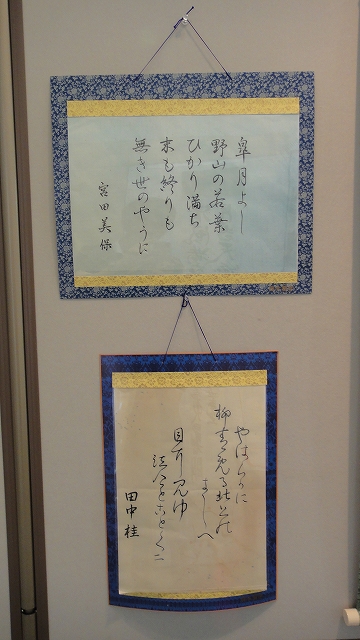 皐月よし
野山の若葉
ひかり満ち
末も終りも
無き世のやうに
宮田美保
やはらかに
柳あをめる北上の
きしへ
目に見ゆ
泣けとことくに
田中桂